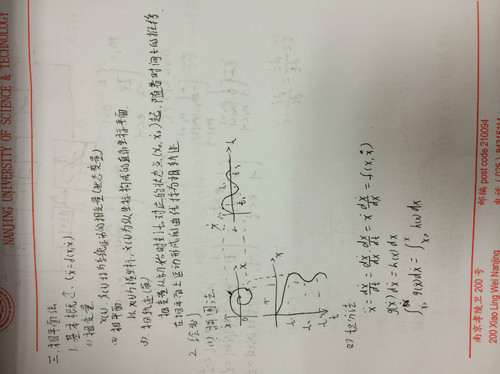 NANJING UNIVERSITY OF SCIENCE & TECHNOLOGY
三. 相平面法
1. 基本概念 (ẍ=f(x,ẋ)
(1) 相变量
x(t), ẋ(t) 称为系统运动的相变量(状态变量)
(2) 相平面
以x(t)为横坐标, ẋ(t)为纵坐标构成的直角坐标平面.
(3) 相轨迹(簇)
相变量从初始时刻t₀对应的状态点(x₀, ẋ₀)起, 随着时间t的推移,
在相平面上运动形成的曲线称为相轨迹.
2. 绘制
(1) 解图法.
(2) 积分法
ẍ = dẋ/dt = dẋ/dx · dx/dt = ẋ dẋ/dx = f(x, ẋ)
g(ẋ)dẋ = h(x)dx
∫ g(ẋ)dẋ = ∫ h(x)dx
南京孝陵卫 200 号
200 Xiao Ling Wei Nanjing
邮编 post code 210094
电话 (025) 84315114